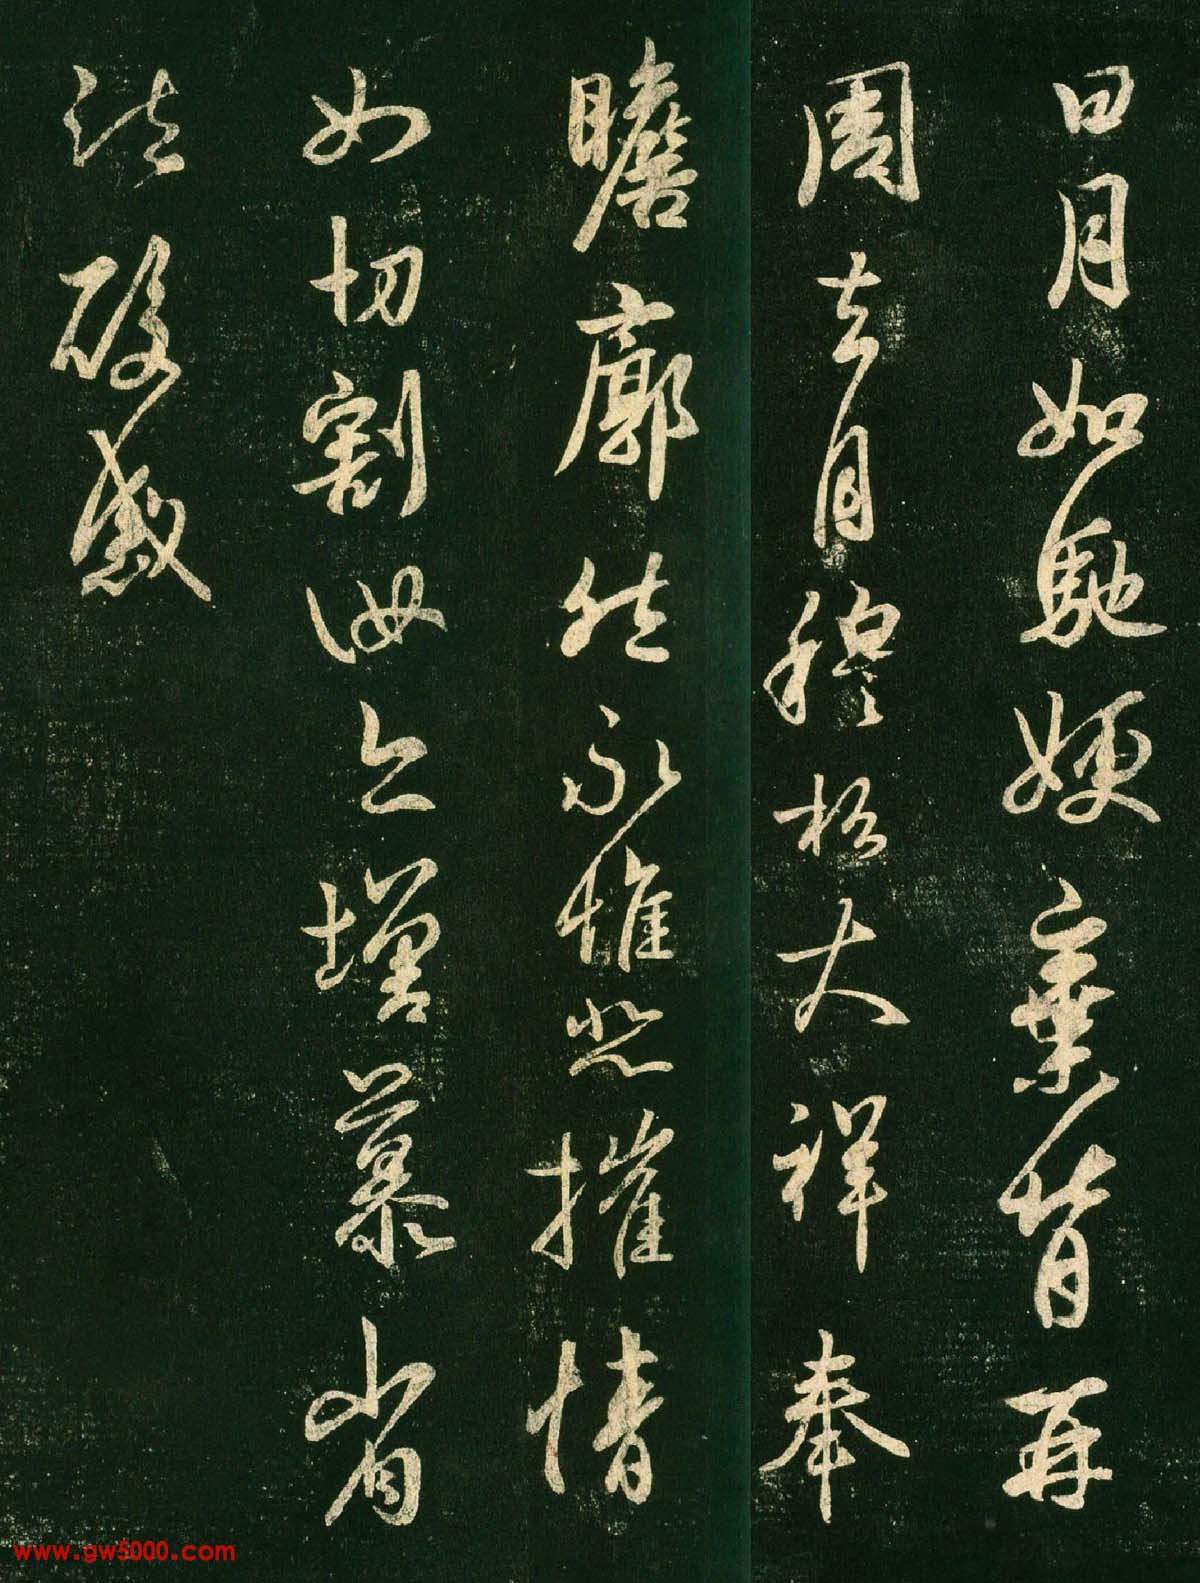 日月如馳嫂棄背再
周去月穆松大祥奉
瞻廓然永惟悲摧情
如切割汝亦增慕省
疏酸感
www.gw5000.com